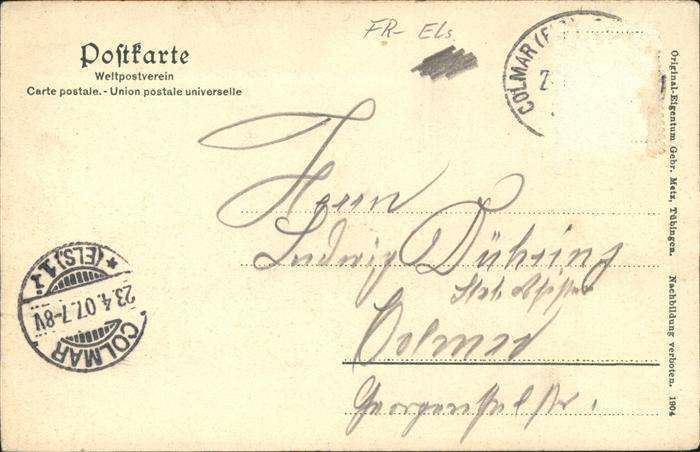 FR- Els.
Postkarte
Weltpostverein
Carte postale. - Union postale universelle
COLMAR (E
2
Herrn
Ludwig Dühring
Colmar
Georgen str.
COLMAR
23.4.07.7-8V
* (ELS) 1
Original-Eigentum Gebr. Metz, Tübingen. Nachbildung verboten. 1904